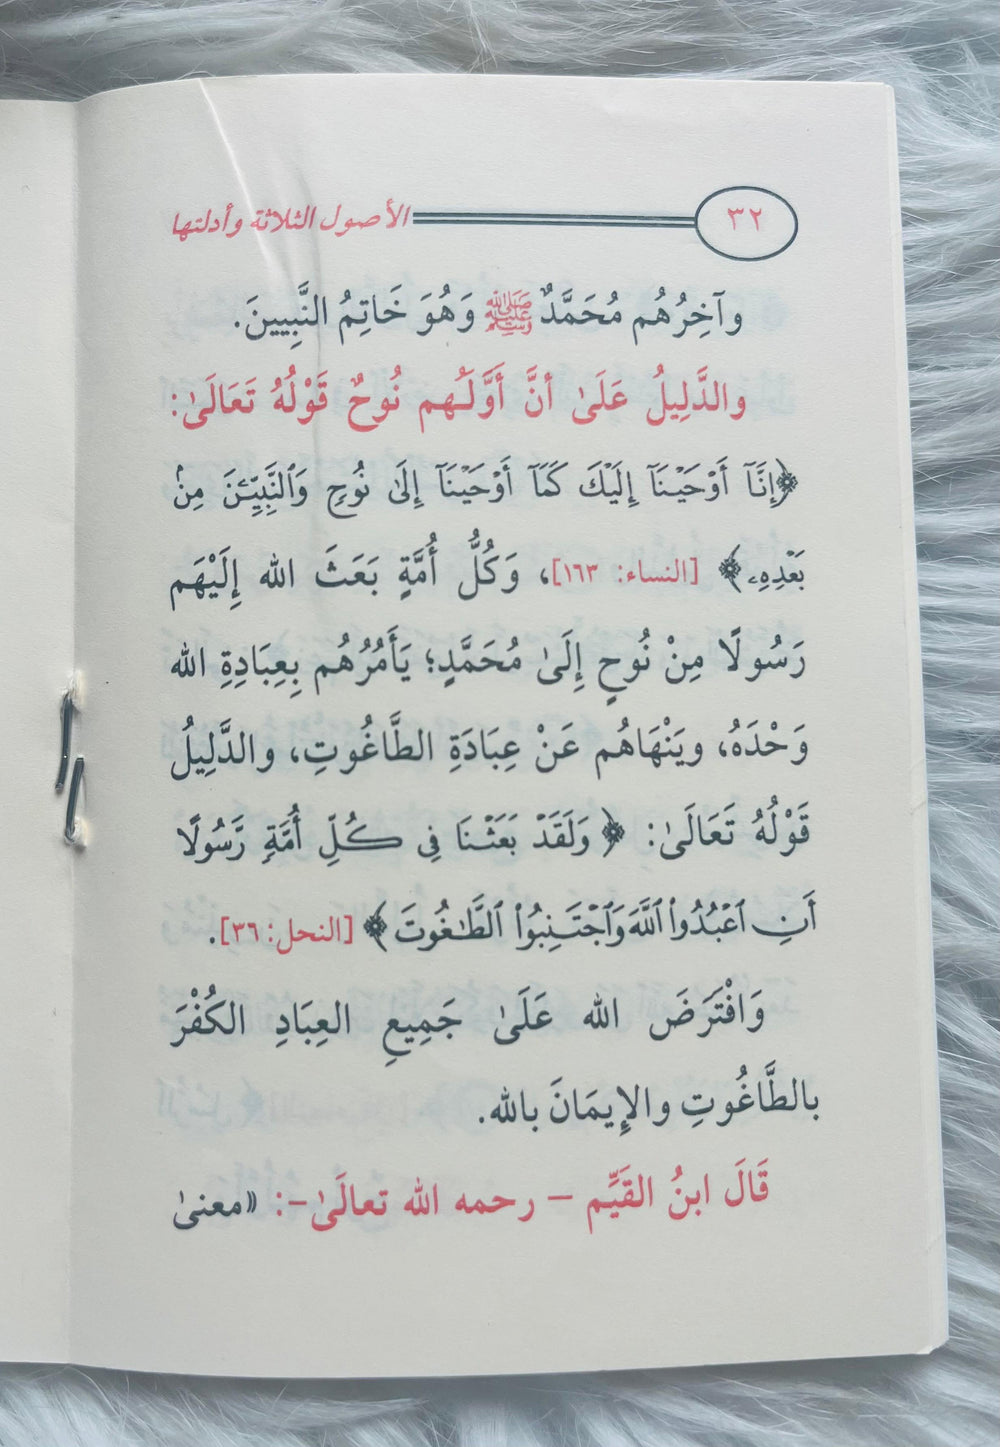 ٣٢ الأصول الثلاثة وأدلتها
وآخِرُهُم مُحَمَّدٌ ﷺ وَهُوَ خَاتِمُ النَّبِيينَ.
والدَّلِيلُ عَلَىٰ أنَّ أَوَّلَـهُم نُوحٌ قَوْلُهُ تَعَالَىٰ:
﴿إِنَّآ أَوۡحَيۡنَآ إِلَيۡكَ كَمَآ أَوۡحَيۡنَآ إِلَىٰ نُوحٖ وَٱلنَّبِيِّـۧنَ مِنۢ
بَعۡدِهِۦ﴾ [النساء: ١٦٣]، وَكُلُّ أُمَّةٍ بَعَثَ الله إِلَيْهَم
رَسُولًا مِنْ نُوحٍ إِلَىٰ مُحَمَّدٍ؛ يَأَمُرُهُم بِعِبَادِةِ الله
وَحْدَهُ، ويَنْهَاهُم عَنْ عِبَادَةِ الطَّاغُوتِ، والدَّلِيلُ
قَوْلُهُ تَعَالَىٰ: ﴿وَلَقَدۡ بَعَثۡنَا فِي كُلِّ أُمَّةٖ رَّسُولًا
أَنِ ٱعۡبُدُواْ ٱللَّهَ وَٱجۡتَنِبُواْ ٱلطَّٰغُوتَ﴾ [النحل: ٣٦].
وَافْتَرَضَ الله عَلَىٰ جَمِيعِ العِبَادِ الكُفْرَ
بالطَّاغُوتِ والإِيمَانَ بالله.
قَالَ ابنُ القَيَّم – رحمه الله تعالَىٰ–: «معنىٰ